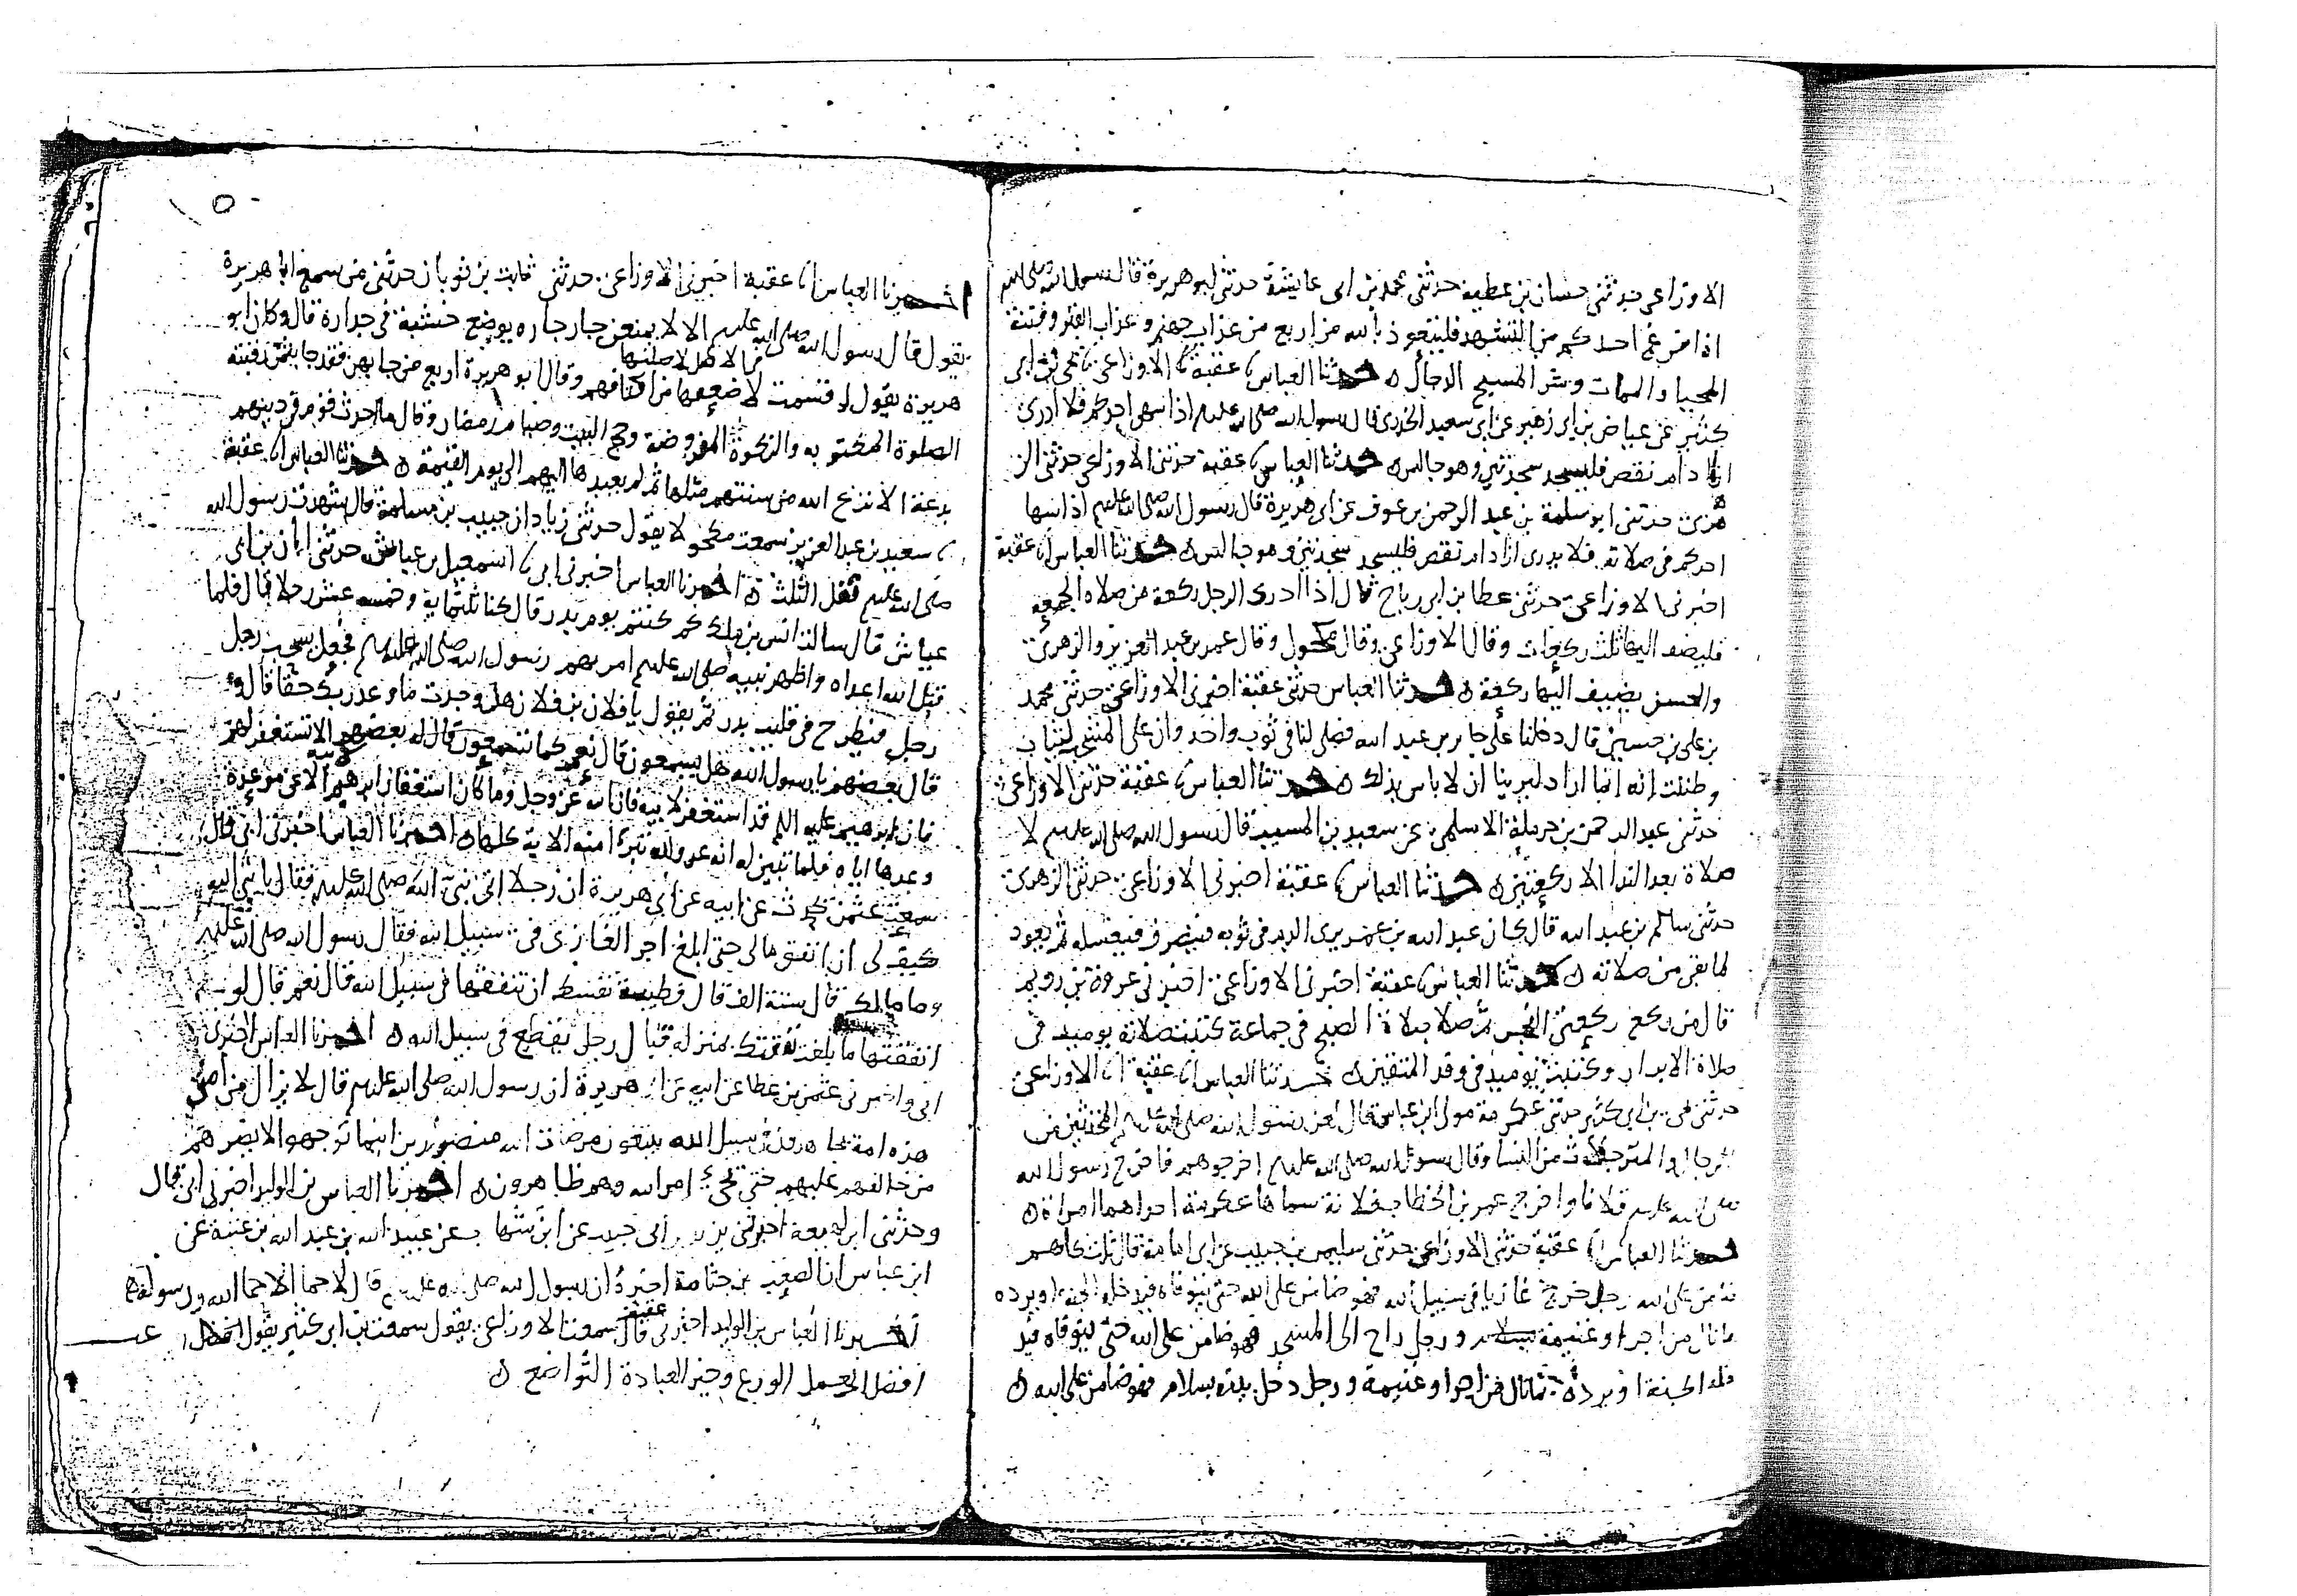 الاوزاعي حدثني حسان بن عطية حدثني محمد بن ابي عايشة حدثني ابو هريرة قال رسول الله صلى الله
اذا فرغ احدكم من التشهد فليتعوذ بالله من اربع من عذاب جهنم وعذاب القبر وفتنة
المحيا والممات وشر المسيح الدجال ه حدثنا العباس ٤ عقبة ٤ الاوزاعي ٤ يحيى بن ابي
كثير عن عياض بن ابي زهير عن ابي سعيد الخدري قال رسول الله صلى الله عليه اذا سهى احدكم فلا ادرى
ازاد ام نقص فليسجد سجدتين وهو جالس ه حدثنا العباس ٤ عقبة حدثني الاوزاعي حدثني الز
هري حدثني ابو سلمة بن عبد الرحمن بن عوف عن ابي هريرة قال رسول الله صلى الله عليه اذا سها
احدكم في صلاته فلا يدرى ازاد ام نقص فليسجد سجدتين وهو جالس ه حدثنا العباس ٤ عقبة
اخبرني الاوزاعي حدثني عطا بن ابي رباح قال اذا ادرك الرجل ركعة من صلاه الجمعه
فليضف اليها ثلث ركعات وقال الاوزاعي وقال مكحول وقال عمر بن عبد العزيز والزهري
والحسن يضيف اليها ركعة ه حدثنا العباس حدثني عقبة اخبرني الاوزاعي حدثني محمد
بن علي بن حسين قال دخلنا على جابر بن عبد الله فصلى لنا في ثوب واحد وان على المشجب لثياب
وظننت انه انما اراد ليرينا ان لا باس بذلك ه حدثنا العباس ٤ عقبة حدثني الاوزاعي
حدثني عبد الرحمن بن حرملة الاسلمي عن سعيد بن المسيب قال رسول الله صلى الله عليه لا
صلاة بعد الندا الا ركعتين ه حدثنا العباس ٤ عقبة اخبرني الاوزاعي حدثني الزهري
حدثني سالم بن عبد الله قال كان عبد الله بن عمر يرى الدم في ثوبه فينصرف فيغسله ثم يعود
لما بقي من صلاته ه حدثنا العباس ٤ عقبة اخبرني الاوزاعي اخبرني عروة بن رويم
قال من ركع ركعتي الفجر ثم صلا صلاة الصبح في جماعة كتبت صلاته يوميذ في
صلاة الابرار وكتب يوميذ في وفد المتقين ه حدثنا العباس ٤ عقبة ٤ الاوزاعي
حدثني يحيى بن ابي كثير حدثني عكرمة مولى ابن عباس قال لعن رسول الله صلى الله عليه المخنثين من
الرجال والمترجلات من النسا وقال رسول الله صلى الله عليه اخرجوهم فاخرج رسول الله
صلى الله عليه فلانا واخرج عمر بن الخطاب فلانة سماها عكرمة احداهما امراة ه
حدثنا العباس ٤ عقبة حدثني الاوزاعي حدثني سليمن بن حبيب عن ابي امامة قال ثلث كلهم
ضامن على الله رجل خرج غازيا في سبيل الله فهو ضامن على الله حتى يتوفاه فيدخله الجنة او يرده
بما نال من اجر او غنيمة ورجل راح الى المسجد فهو ضامن على الله حتى يتوفاه فيد
خله الجنة او يرده بما نال من اجر او غنيمة ورجل دخل بيته بسلام فهو ضامن على الله ه
اخبرنا العباس ٤ عقبة اخبرني الاوزاعي حدثني ثابت بن ثوبان حدثني من سمع ابا هريرة
يقول قال رسول الله صلى الله عليه الا لا يمنعن جار جاره يوضع خشبة في جداره قال وكان ابو
هريرة يقول لو قسمت لاضعها من اكتافهم وقال ابو هريرة اربع من جا بهن فقد جا
الصلوة المكتوبه والزكوة المفروضة وحج البيت وصيام رمضان وقال ما احدث قوم في دينهم
بدعة الا نزع الله من سنتهم مثلها ثم لم يعيدها اليهم الى يوم القيمة ه حدثنا العباس ٤ عقبة
٤ سعيد بن عبد العزيز سمعت مكحولا يقول حدثني زياد ان حبيب بن مسلمة قال شهدت رسول الله
صلى الله عليه نفل الثلث ه اخبرنا العباس اخبرني ابي ٤ اسمعيل بن عياش حدثني ابان بن ابي
عياش قال سالت انس بن ملك كم كنتم يوم بدر قال كنا ثلثماية وخمسه عشر رجلا قال فلما
قتل الله اعداه واظهر نبيه صلى الله عليه امر بهم رسول الله صلى الله عليه فجعل يسحب رجل
رجل فيطرح في قليب بدر ثم يقول يا فلان بن فلان هل وجدت ما وعد ربك حقا قال
قال بعضهم يا رسول الله هل يسمعون قال نعم كما تسمعون قال له بعضهم الا تستغفر لهم
فان ابرهيم عليه السلم قد استغفر لابيه فانزل الله عز وجل وما كان استغفار ابرهيم لابيه الا عن موعدة
وعدها اياه فلما تبين له انه عدو لله تبرا منه الاية كلها ه اخبرنا العباس اخبرني ابي قال
سمعت عثمن يحدث عن ابيه عن ابي هريرة ان رجلا اتى نبي الله صلى الله عليه فقال يا نبي الله
كيف لي ان انفق مالي حتى ابلغ اجر الغازي في سبيل الله فقال رسول الله صلى الله عليه
وما مالك قال ستة الف قال فطيبة نفسك ان تنفقها في سبيل الله قال نعم قال لو
انفقتها ما بلغت نفقتك بمنزلة قبال رجل تقطع في سبيل الله ه اخبرنا العباس اخبرني
ابي واخبرني عثمن بن عطا عن ابيه عن ابي هريرة ان رسول الله صلى الله عليه قال لا يزال من امتي
هذه امة يجاهدون في سبيل الله يبتغون مرضات الله منصورين اينما توجهوا لا يضرهم
من خالفهم عليهم حتى يجيء امر الله وهم ظاهرون ه اخبرنا العباس بن الوليد اخبرني ابي قال
وحدثني ابن لهيعة اخبرني يزيد بن ابي حبيب عن ابن شهاب عن عبيد الله بن عبد الله بن عتبة عن
ابن عباس ان الصعب بن جثامة اخبره ان رسول الله صلى الله عليه قال لا حما الا حما الله ورسوله ه
اخبرنا العباس بن الوليد اخبرني عقبة قال سمعت الاوزاعي يقول سمعت بن ابي كثير يقول
افضل العمل الورع وخير العبادة التواضع ه